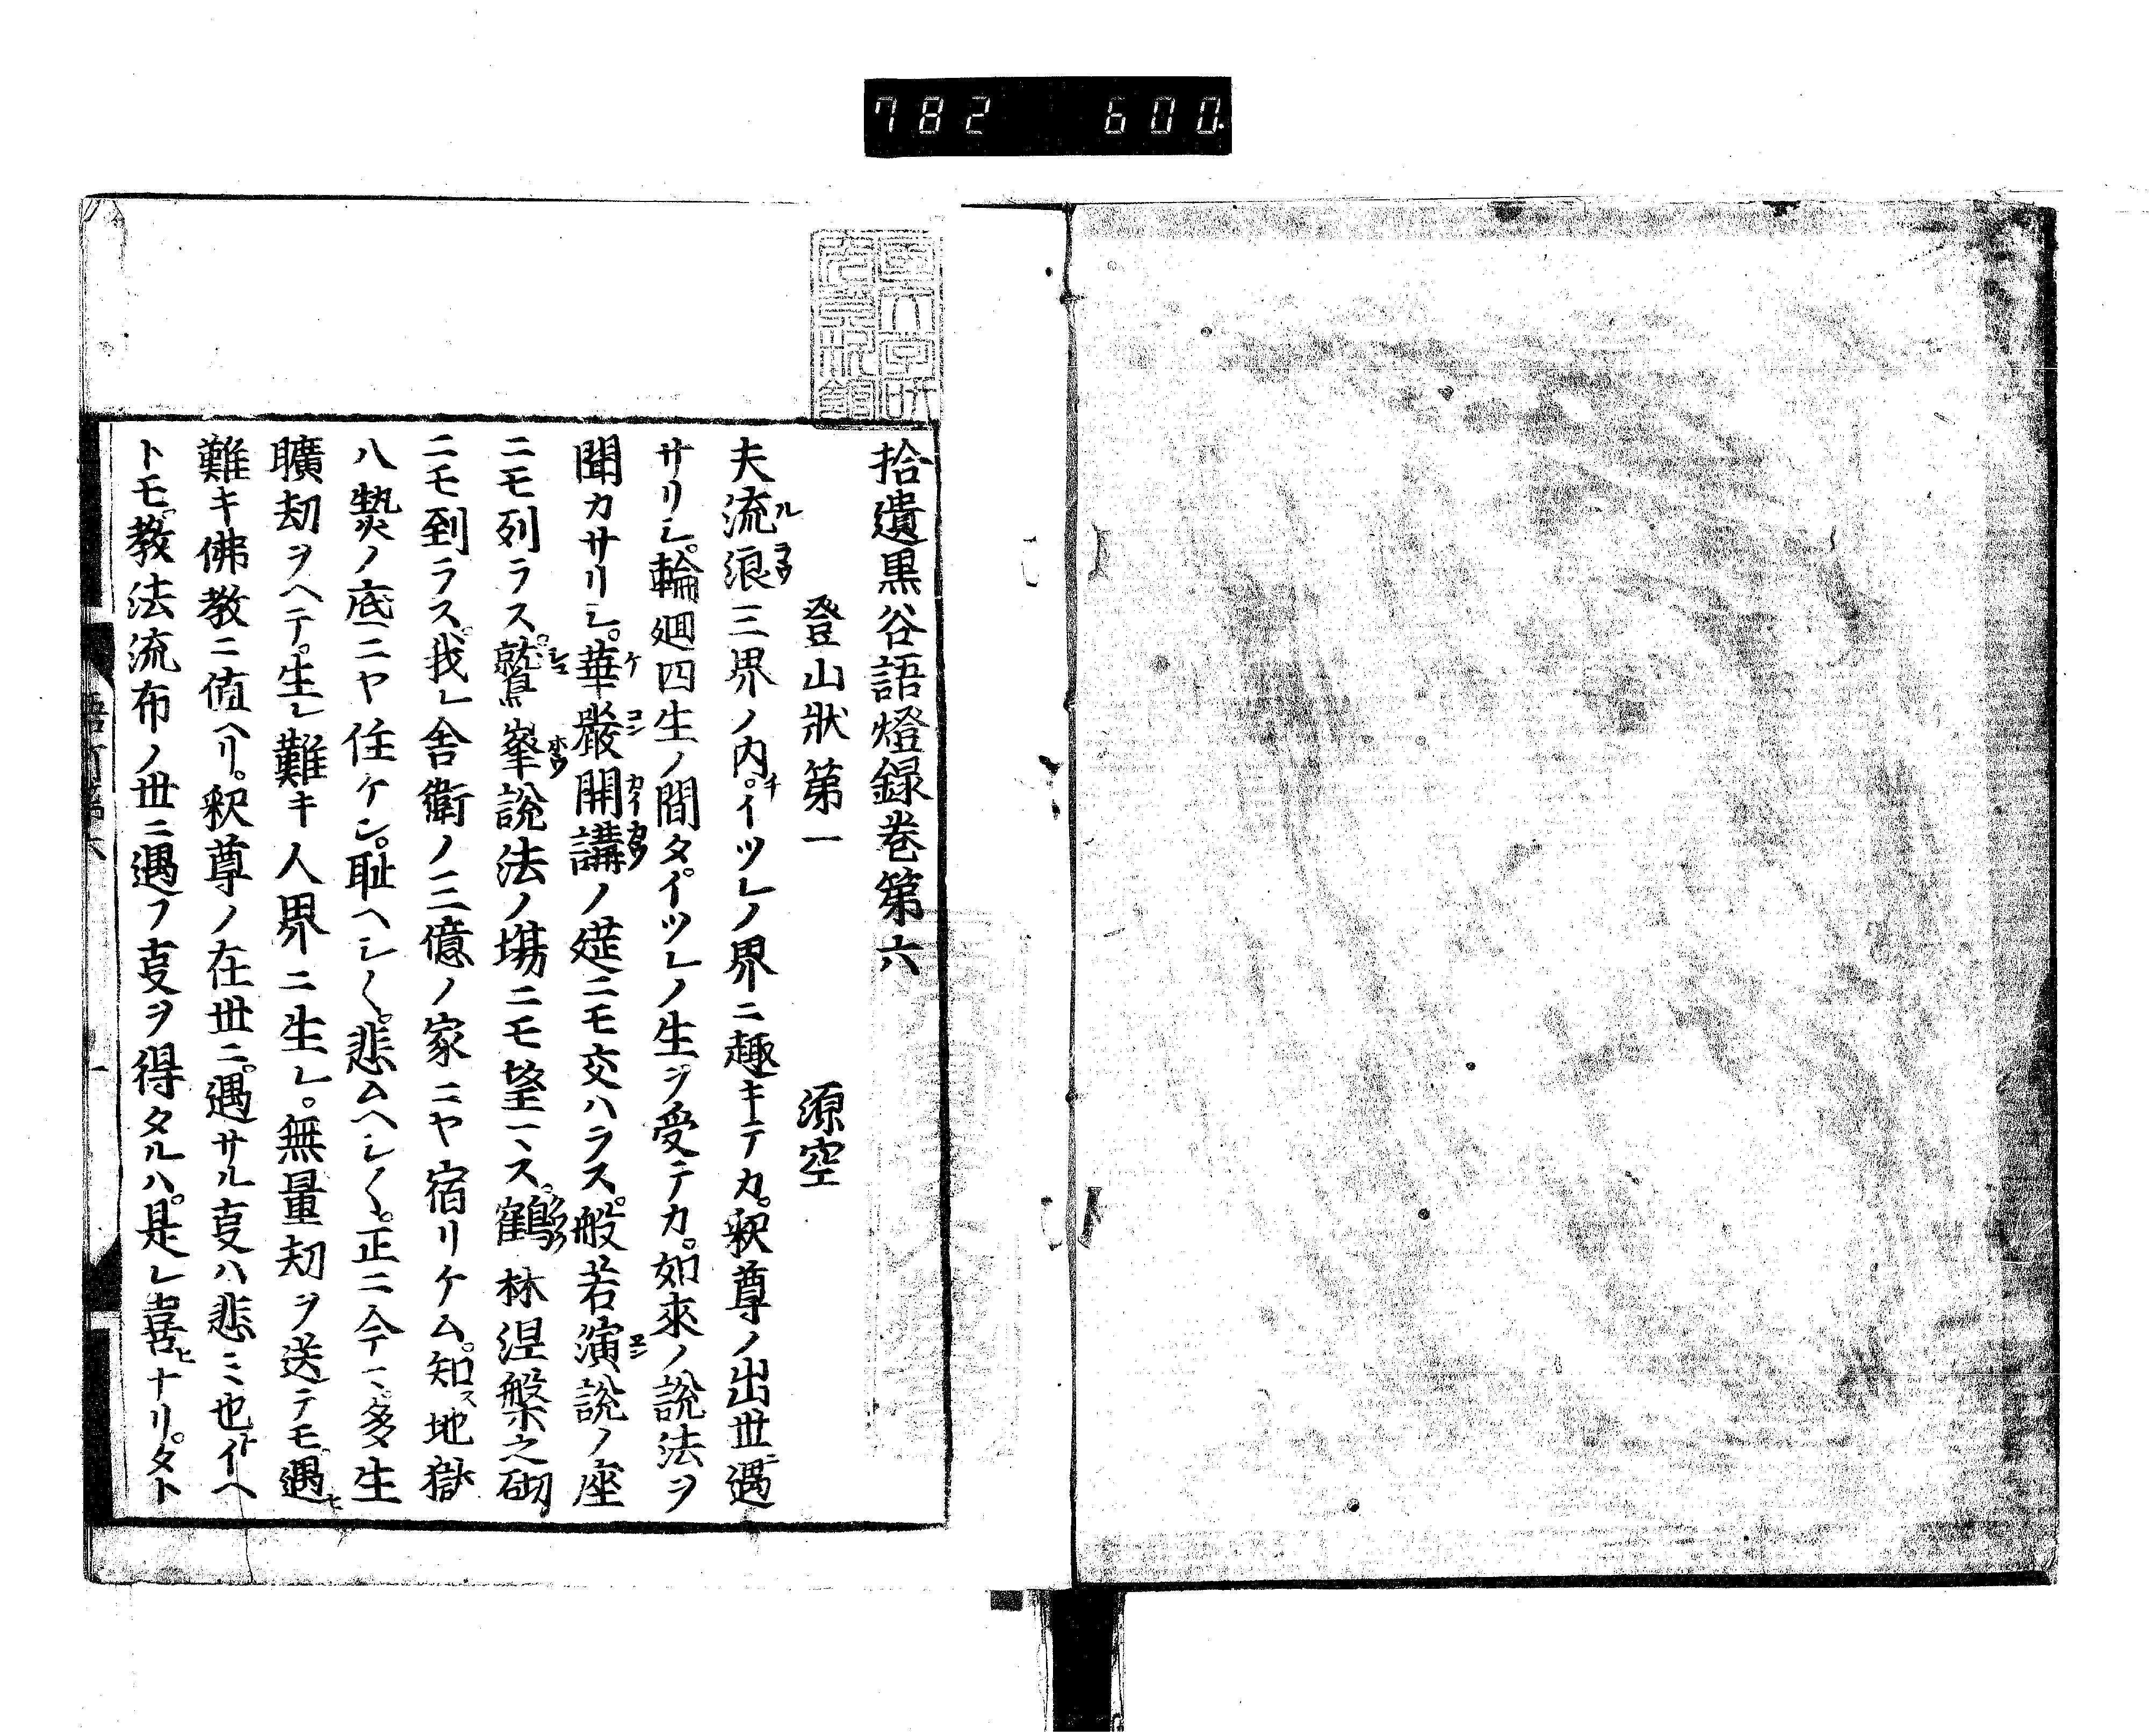 782 600
拾遺黒谷語燈録巻第六
登山狀第一 源空
夫流浪三界ノ内チ。イツレノ界ニ趣キテカ。釈尊ノ出世ニ遇
サリシ。輪廻四生ノ間タ。イツレノ生ヲ受テカ。如來ノ說法ヲ
聞カサリシ。華嚴開講ノ莚ニモ交ハラス。般若演說ノ座
ニモ列ラス。鷲峯說法ノ塲ニモ望マス。鶴林涅槃之砌
ニモ到ラス。我レ舎衛ノ三億ノ家ニヤ宿リケム。知ス地獄
八熱ノ底ニヤ住ケン。耻ヘシ〱。悲ムヘシ〱。正ニ今マ多生
曠刧ヲヘテ。生レ難キ人界ニ生レ。無量刧ヲ送テモ。遇ヒ
難キ佛教ニ値ヘリ。釈尊ノ在世ニ。遇サル叓ハ悲ミ也トイヘ
トモ。教法流布ノ世ニ遇フ叓ヲ得タルハ。是レ喜ヒナリ。タト